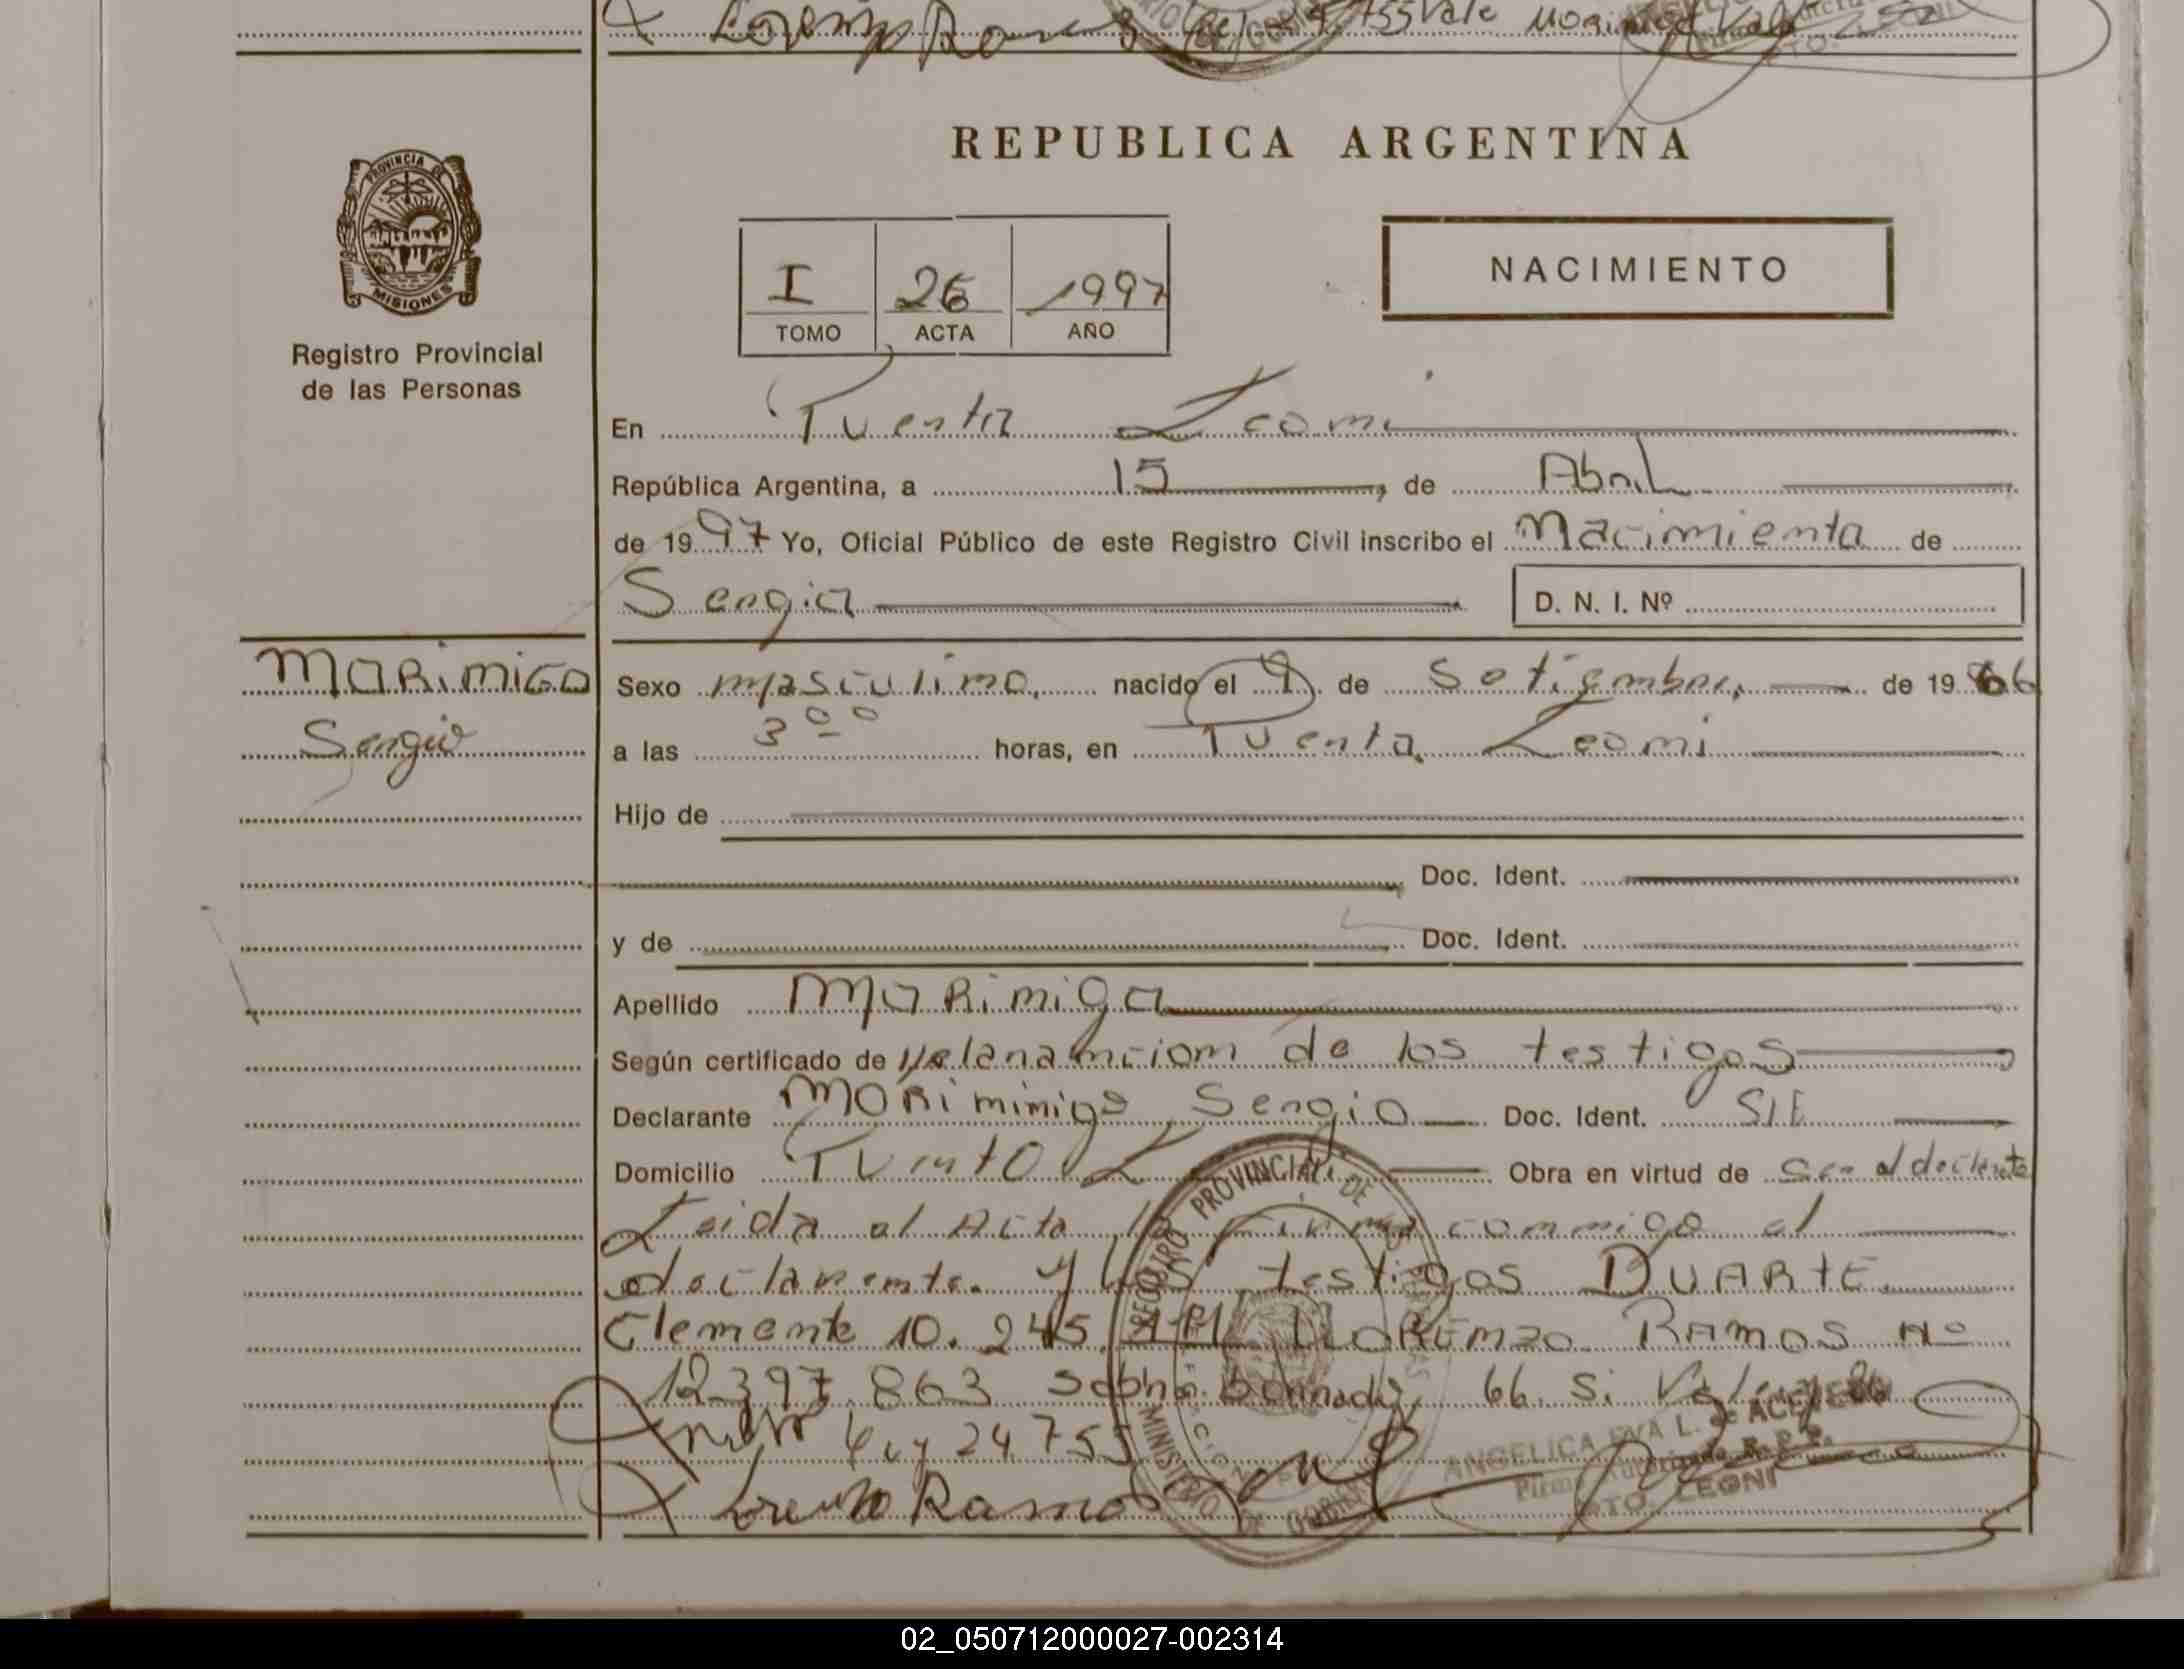 Lorenzo Ramos
REPUBLICA ARGENTINA
PROVINCIA DE
MISIONES
Registro Provincial
de las Personas
NACIMIENTO
I 26 1997
TOMO ACTA AÑO
En Puerto Leoni
República Argentina, a 15 de Abril
de 1997 Yo, Oficial Público de este Registro Civil inscribo el Nacimiento de
Sergio D. N. I. Nº
MORiMiGO
Sergio
Sexo masculino, nacido el 9 de Setiembre, de 1966
a las 3 00 horas, en Puerto Leoni
Hijo de
Doc. Ident.
y de Doc. Ident.
Apellido MORimigo
Según certificado de de los testigos
Declarante Sergio Doc. Ident. S/E
Domicilio Puerto L Obra en virtud de Ser el declarante
Leida el Acta la firma conmigo el
declarante y los testigos DUARTE
Clemente 10.245. LLORENZO RAMOS Nº
12397.863 Sobre Borrado, 66. Si Vale
24.755
Lorenzo Ramos
REGISTRO PROVINCIAL DE LAS PERSONAS
MINISTERIO DE GOBIERNO
ANGELICA EVA L. de ACEVEDO
Firma Autorizada R. P. P.
PTO. LEONI
02_050712000027-002314